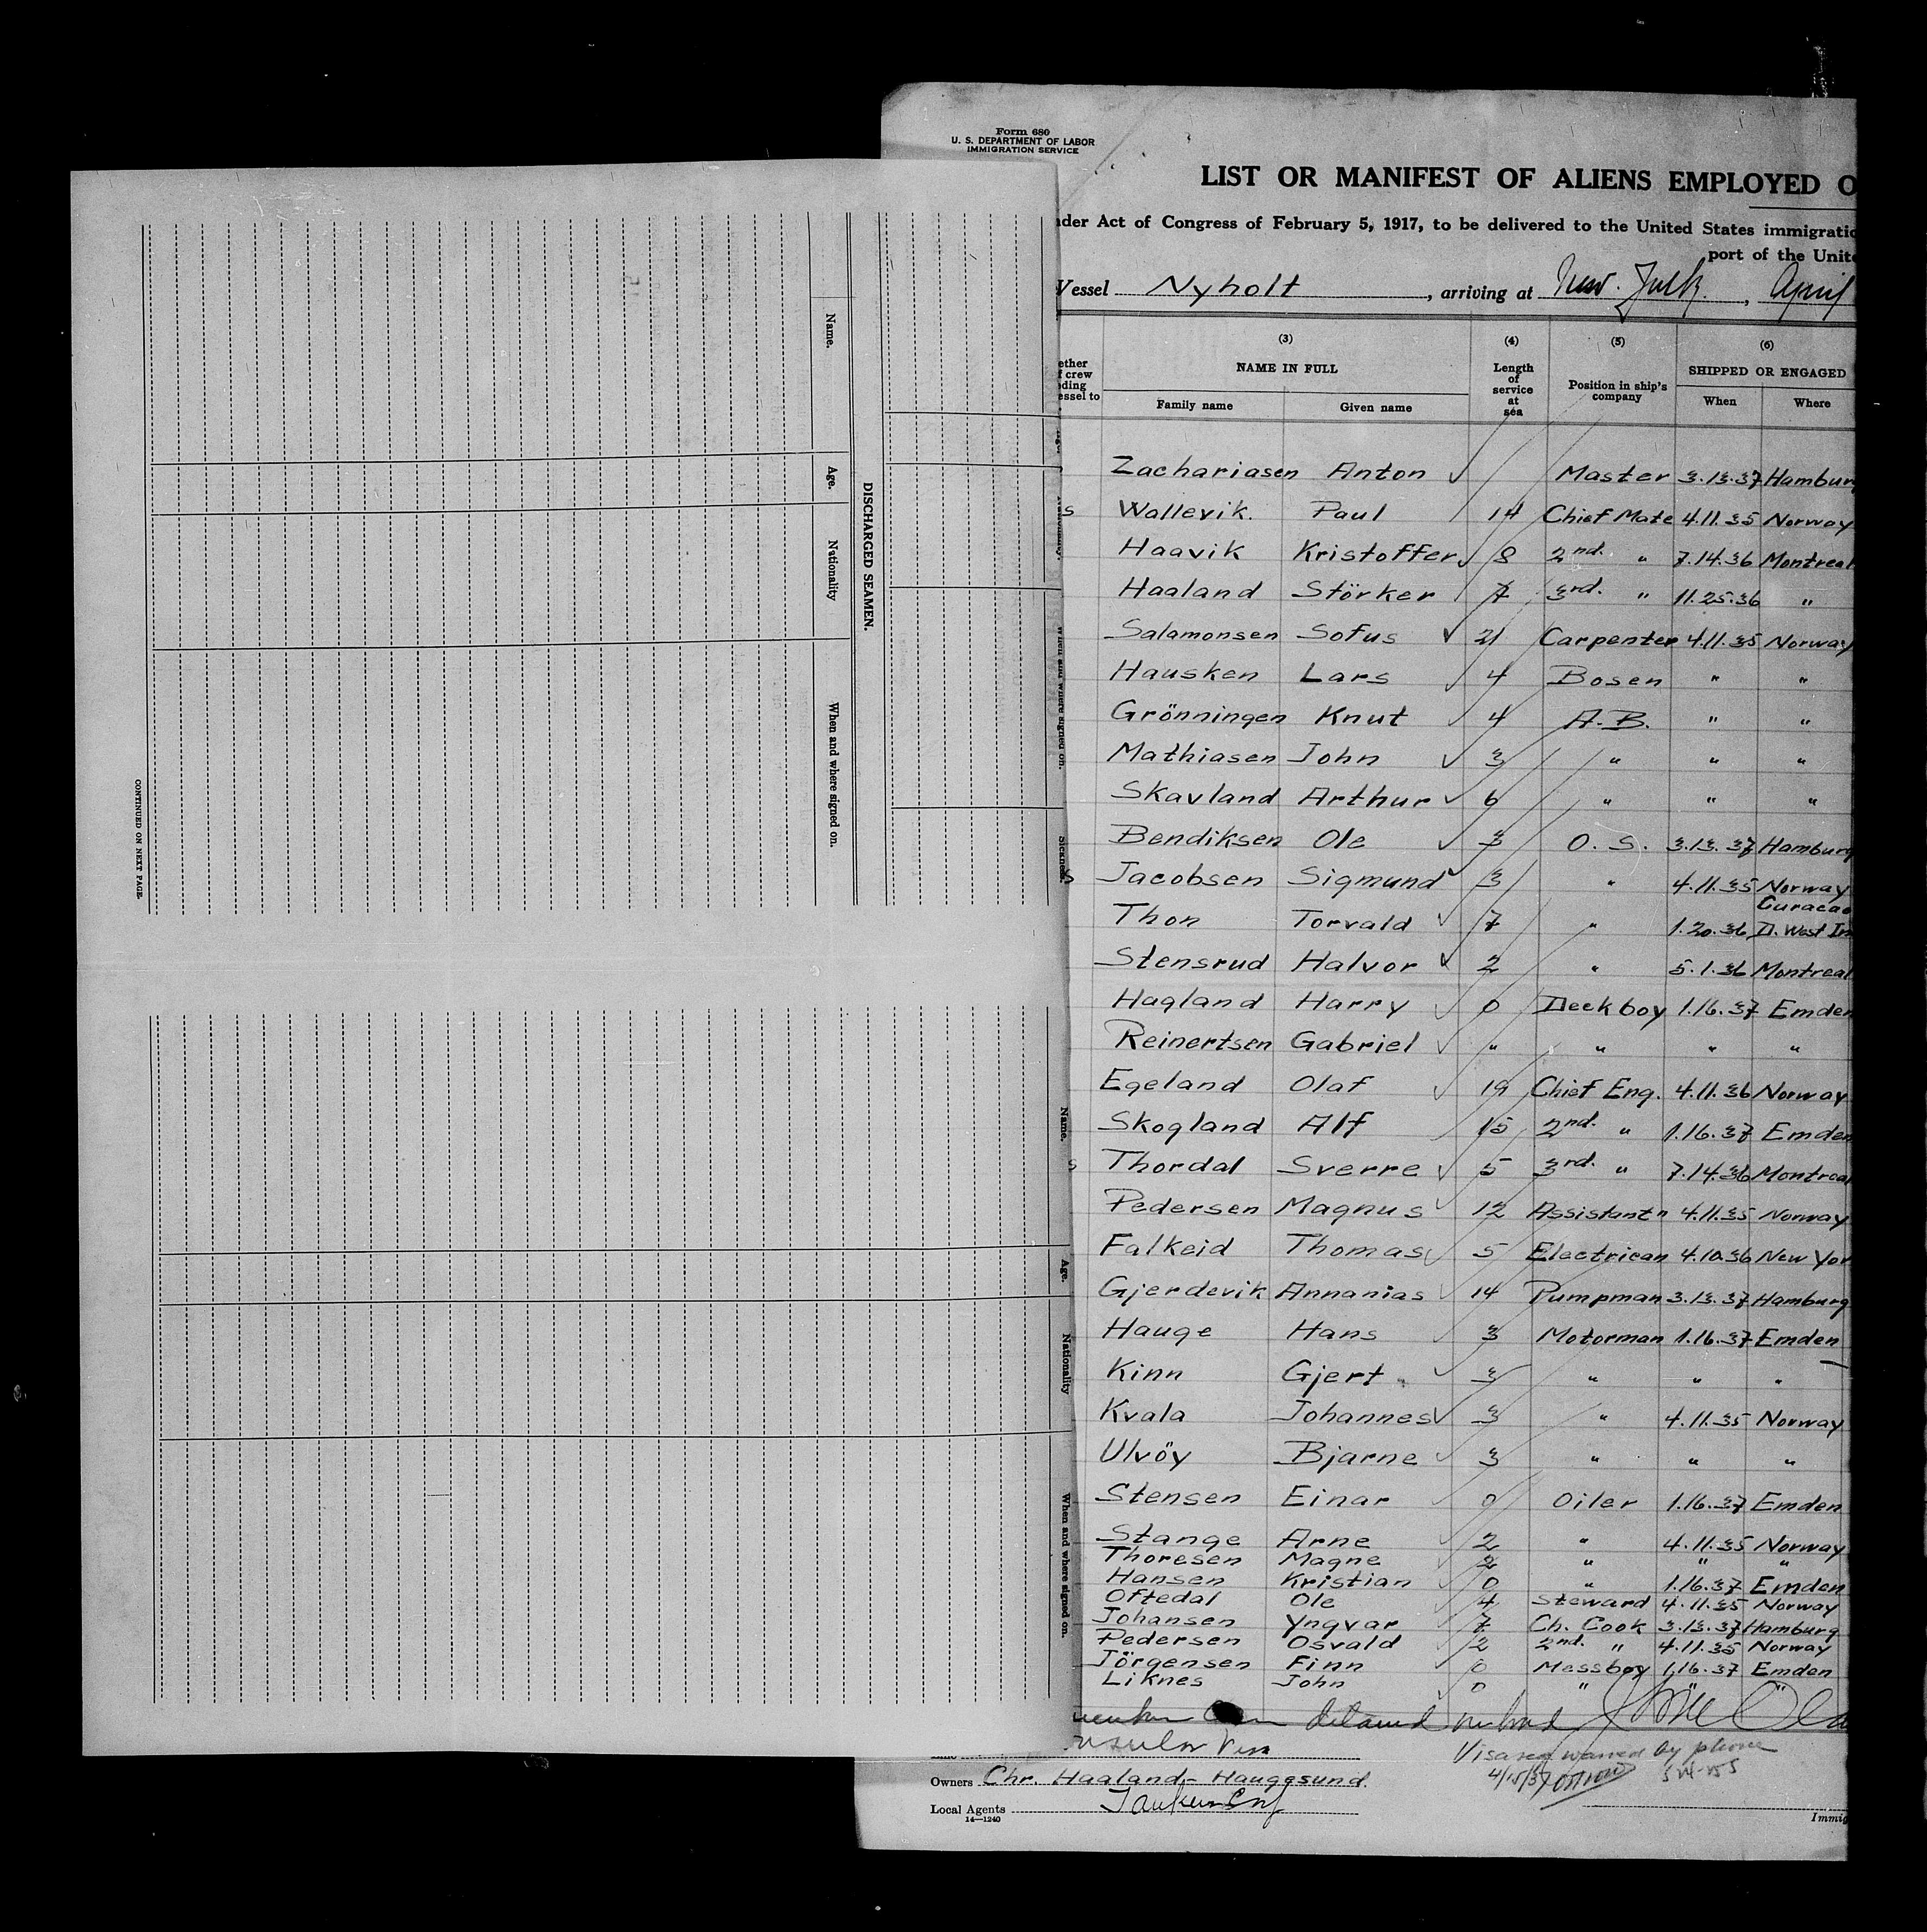 Form 680
U. S. DEPARTMENT OF LABOR
IMMIGRATION SERVICE
LIST OR MANIFEST OF ALIENS EMPLOYED O
nder Act of Congress of February 5, 1917, to be delivered to the United States immigratio
port of the Unite
Vessel Nyholt, arriving at New York, April
ether
f crew
ding
essel to
(3) NAME IN FULL
Family name Given name
(4) Length of service at sea
(5) Position in ship's company
(6) SHIPPED OR ENGAGED
When Where
Zachariasen Anton Master 3.13.37 Hamburg
Wallevik. Paul 14 Chief Mate 4.11.35 Norway
Haavik Kristoffer 8 2nd. " 7.14.36 Montreal
Haaland Störker 7 3rd. " 11.25.36 "
Salamonsen Sofus 21 Carpenter 4.11.35 Norway
Hausken Lars 4 Bosen " "
Grönningen Knut 4 A.B. " "
Mathiasen John 3 " " "
Skavland Arthur 6 " " "
Bendiksen Ole 3 O. S. 3.13.37 Hamburg
Jacobsen Sigmund 3 " 4.11.35 Norway
Thon Torvald 7 " 1.20.36 Curacao D. West In
Stensrud Halvor 2 " 5.1.36 Montreal
Hagland Harry 0 Deckboy 1.16.37 Emden
Reinertsen Gabriel " " " "
Egeland Olaf 19 Chief Eng. 4.11.36 Norway
Skogland Alf 15 2nd. " 1.16.37 Emden
Thordal Sverre 5 3rd. " 7.14.36 Montreal
Pedersen Magnus 12 Assistant " 4.11.35 Norway
Falkeid Thomas 5 Electrican 4.10.36 New Yor
Gjerdevik Annanias 14 Pumpman 3.13.37 Hamburg
Hauge Hans 3 Motorman 1.16.37 Emden
Kinn Gjert 3 " " "
Kvala Johannes 3 " 4.11.35 Norway
Ulvöy Bjarne 3 " " "
Stensen Einar 0 Oiler 1.16.37 Emden
Stange Arne 2 " 4.11.35 Norway
Thoresen Magne 2 " " "
Hansen Kristian 0 " 1.16.37 Emden
Oftedal Ole 4 Steward 4.11.35 Norway
Johansen Yngvar 7 Ch. Cook 3.13.37 Hamburg
Pedersen Osvald 2 2nd. " 4.11.35 Norway
Jörgensen Finn 0 Messboy 1.16.37 Emden
Liknes John 0 " " "
detained on board
Visa waived by phone
4/15/37
Owners Chr. Haaland - Haugesund
Local Agents
14—1240
Immig
Name.
Age.
Nationality
When and where signed on.
DISCHARGED SEAMEN.
CONTINUED ON NEXT PAGE.
When and where signed on.
Sickness.
Name.
Age.
Nationality
When and where signed on.